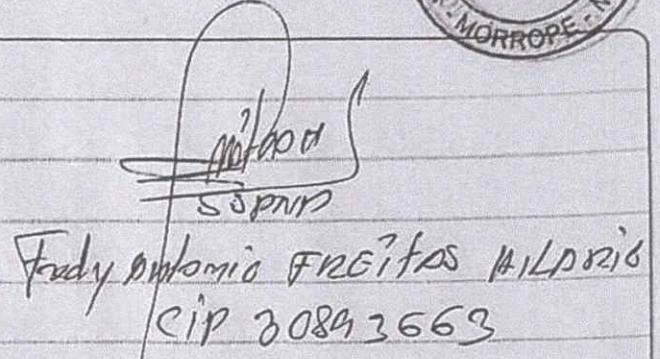 - MORROPE -
SSPNP
Fredy Antonio FREITAS HILARIO
CIP 30893663